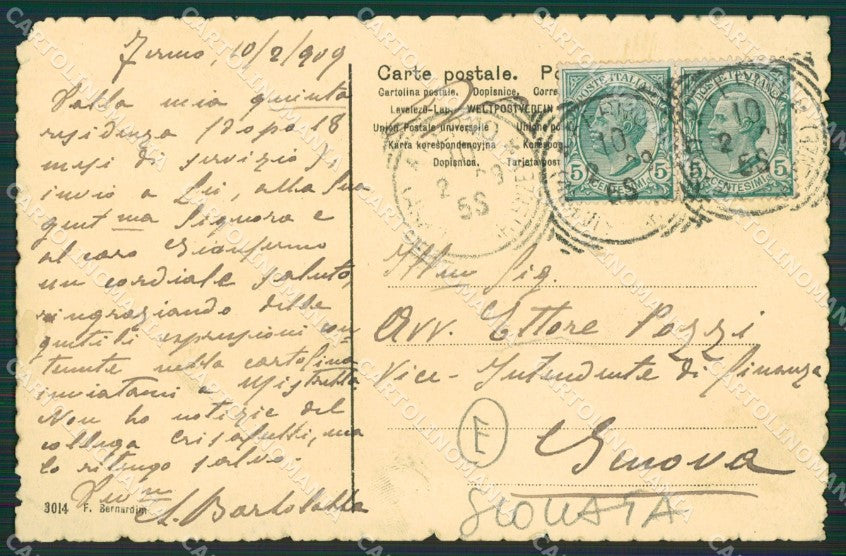 Fermo, 10/2/909
Dalla mia quinta
residenza (dopo 18
mesi di servizio)
invio a Lei, alla Sua
gent.ma Signora e
al caro Gianfermo
un cordiale saluto,
ringraziando delle
gentili espressioni con-
tenute nella cartolina
inviatami a Mistretta
Non ho notizie del
collega Crisafulli, ma
lo ritengo salvo.
Suo
A. Bartolotta
3014 F. Bernardini
Carte postale. Po
Cartolina postale. Dopisnice. Corre
Levelező-Lap. WELTPOSTVEREIN
Union Postale universelle Unione po
Karta korespondencyjna Korespo
Dopisnica. Tarjeta post
POSTE ITALIANE
5 5
CENTESIMI
POSTE ITALIANE
5 5
CENTESIMI
10
2 09
5S
Illmo Sig.
Avv. Ettore Pozzi
Vice-Intendente di Finanza
Genova
F
SLOUATA
CARTOLINOMANIA